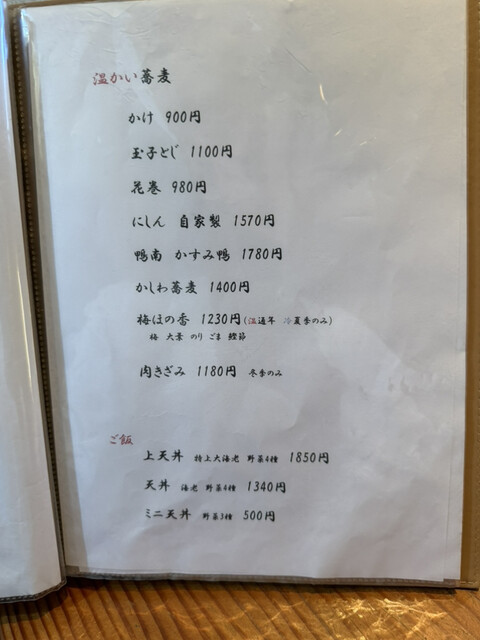 温かい蕎麦
かけ 900円
玉子とじ 1100円
花巻 980円
にしん 自家製 1570円
鴨南 かすみ鴨 1780円
かしわ蕎麦 1400円
梅ほの香 1230円(温通年 冷夏季のみ)
梅 大葉 のり ごま 鰹節
肉きざみ 1180円 冬季のみ
ご飯
上天丼 特上大海老 野菜4種 1850円
天丼 海老 野菜4種 1340円
ミニ天丼 野菜3種 500円